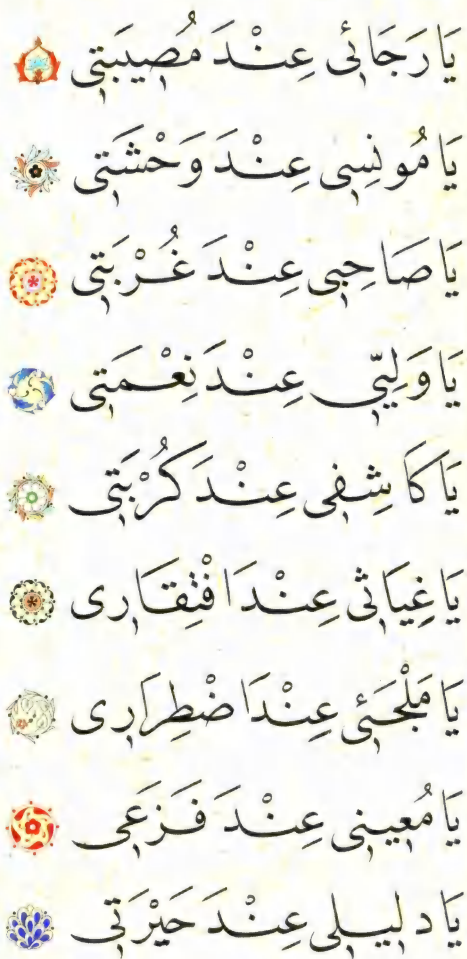 يَا رَجَائِي عِنْدَ مُصِيبَتِي
يَا مُونِسِي عِنْدَ وَحْشَتِي
يَا صَاحِبِي عِنْدَ غُرْبَتِي
يَا وَلِيِّي عِنْدَ نِعْمَتِي
يَا كَاشِفِي عِنْدَ كُرْبَتِي
يَا غِيَاثِي عِنْدَ افْتِقَارِي
يَا مَلْجَئِي عِنْدَ اضْطِرَارِي
يَا مُعِينِي عِنْدَ فَزَعِي
يَا دَلِيلِي عِنْدَ حَيْرَتِي